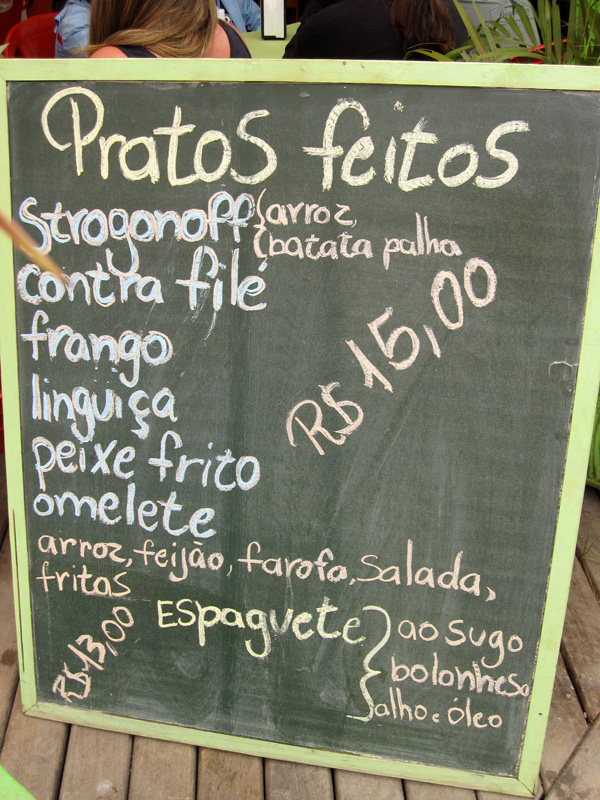 Pratos feitos
Strogonoff { arroz,
batata palha
contra filé
R$ 15,00
frango
linguiça
peixe frito
omelete
arroz, feijão, farofa, salada,
fritas
R$ 13,00
Espaguete } ao sugo
bolonhesa
alho e óleo